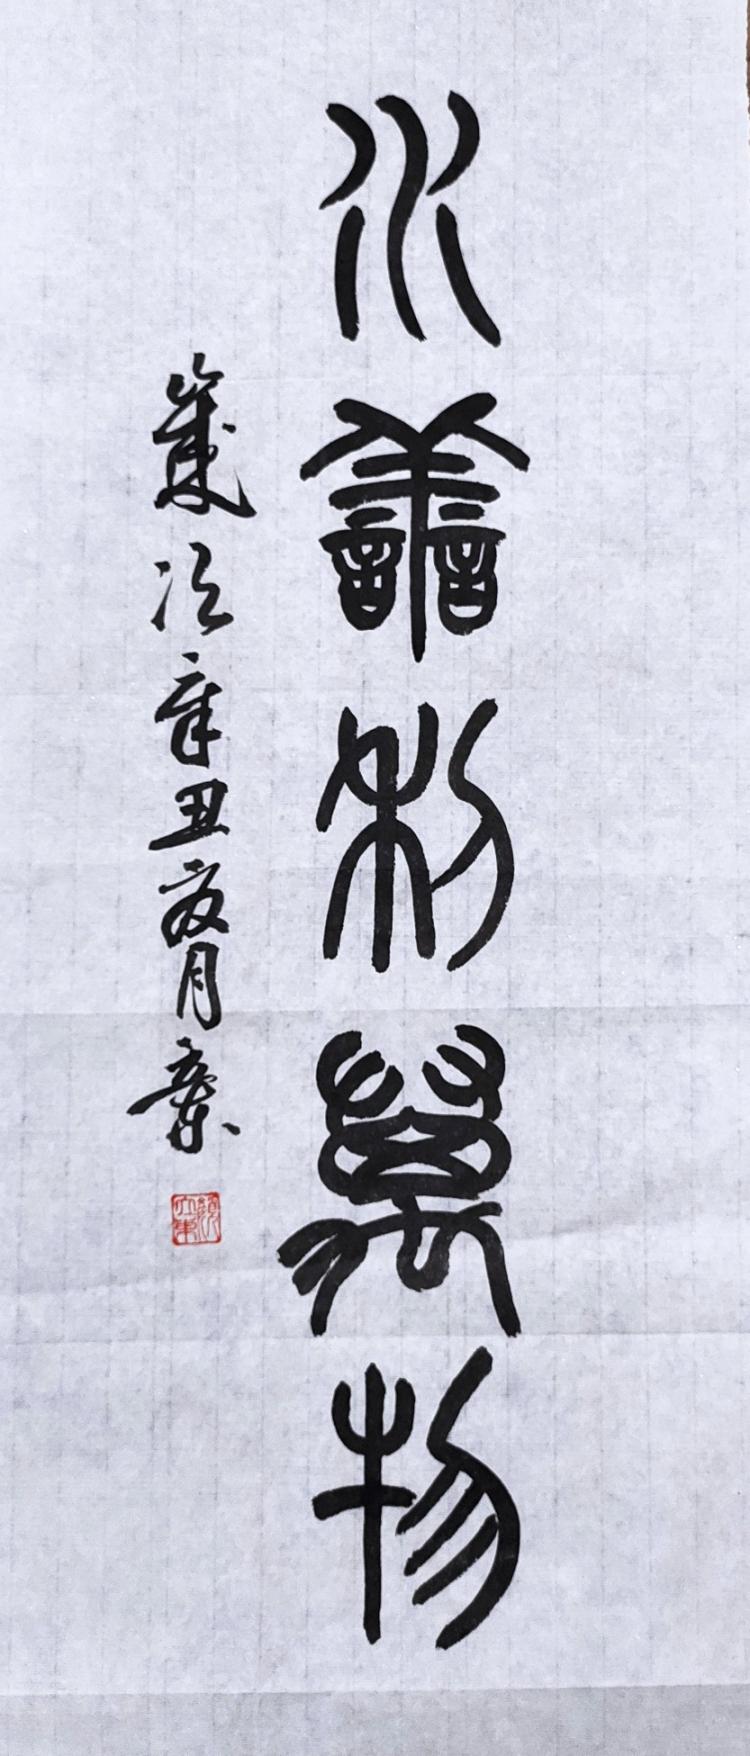 水善利萬物
歲次辛丑亥月